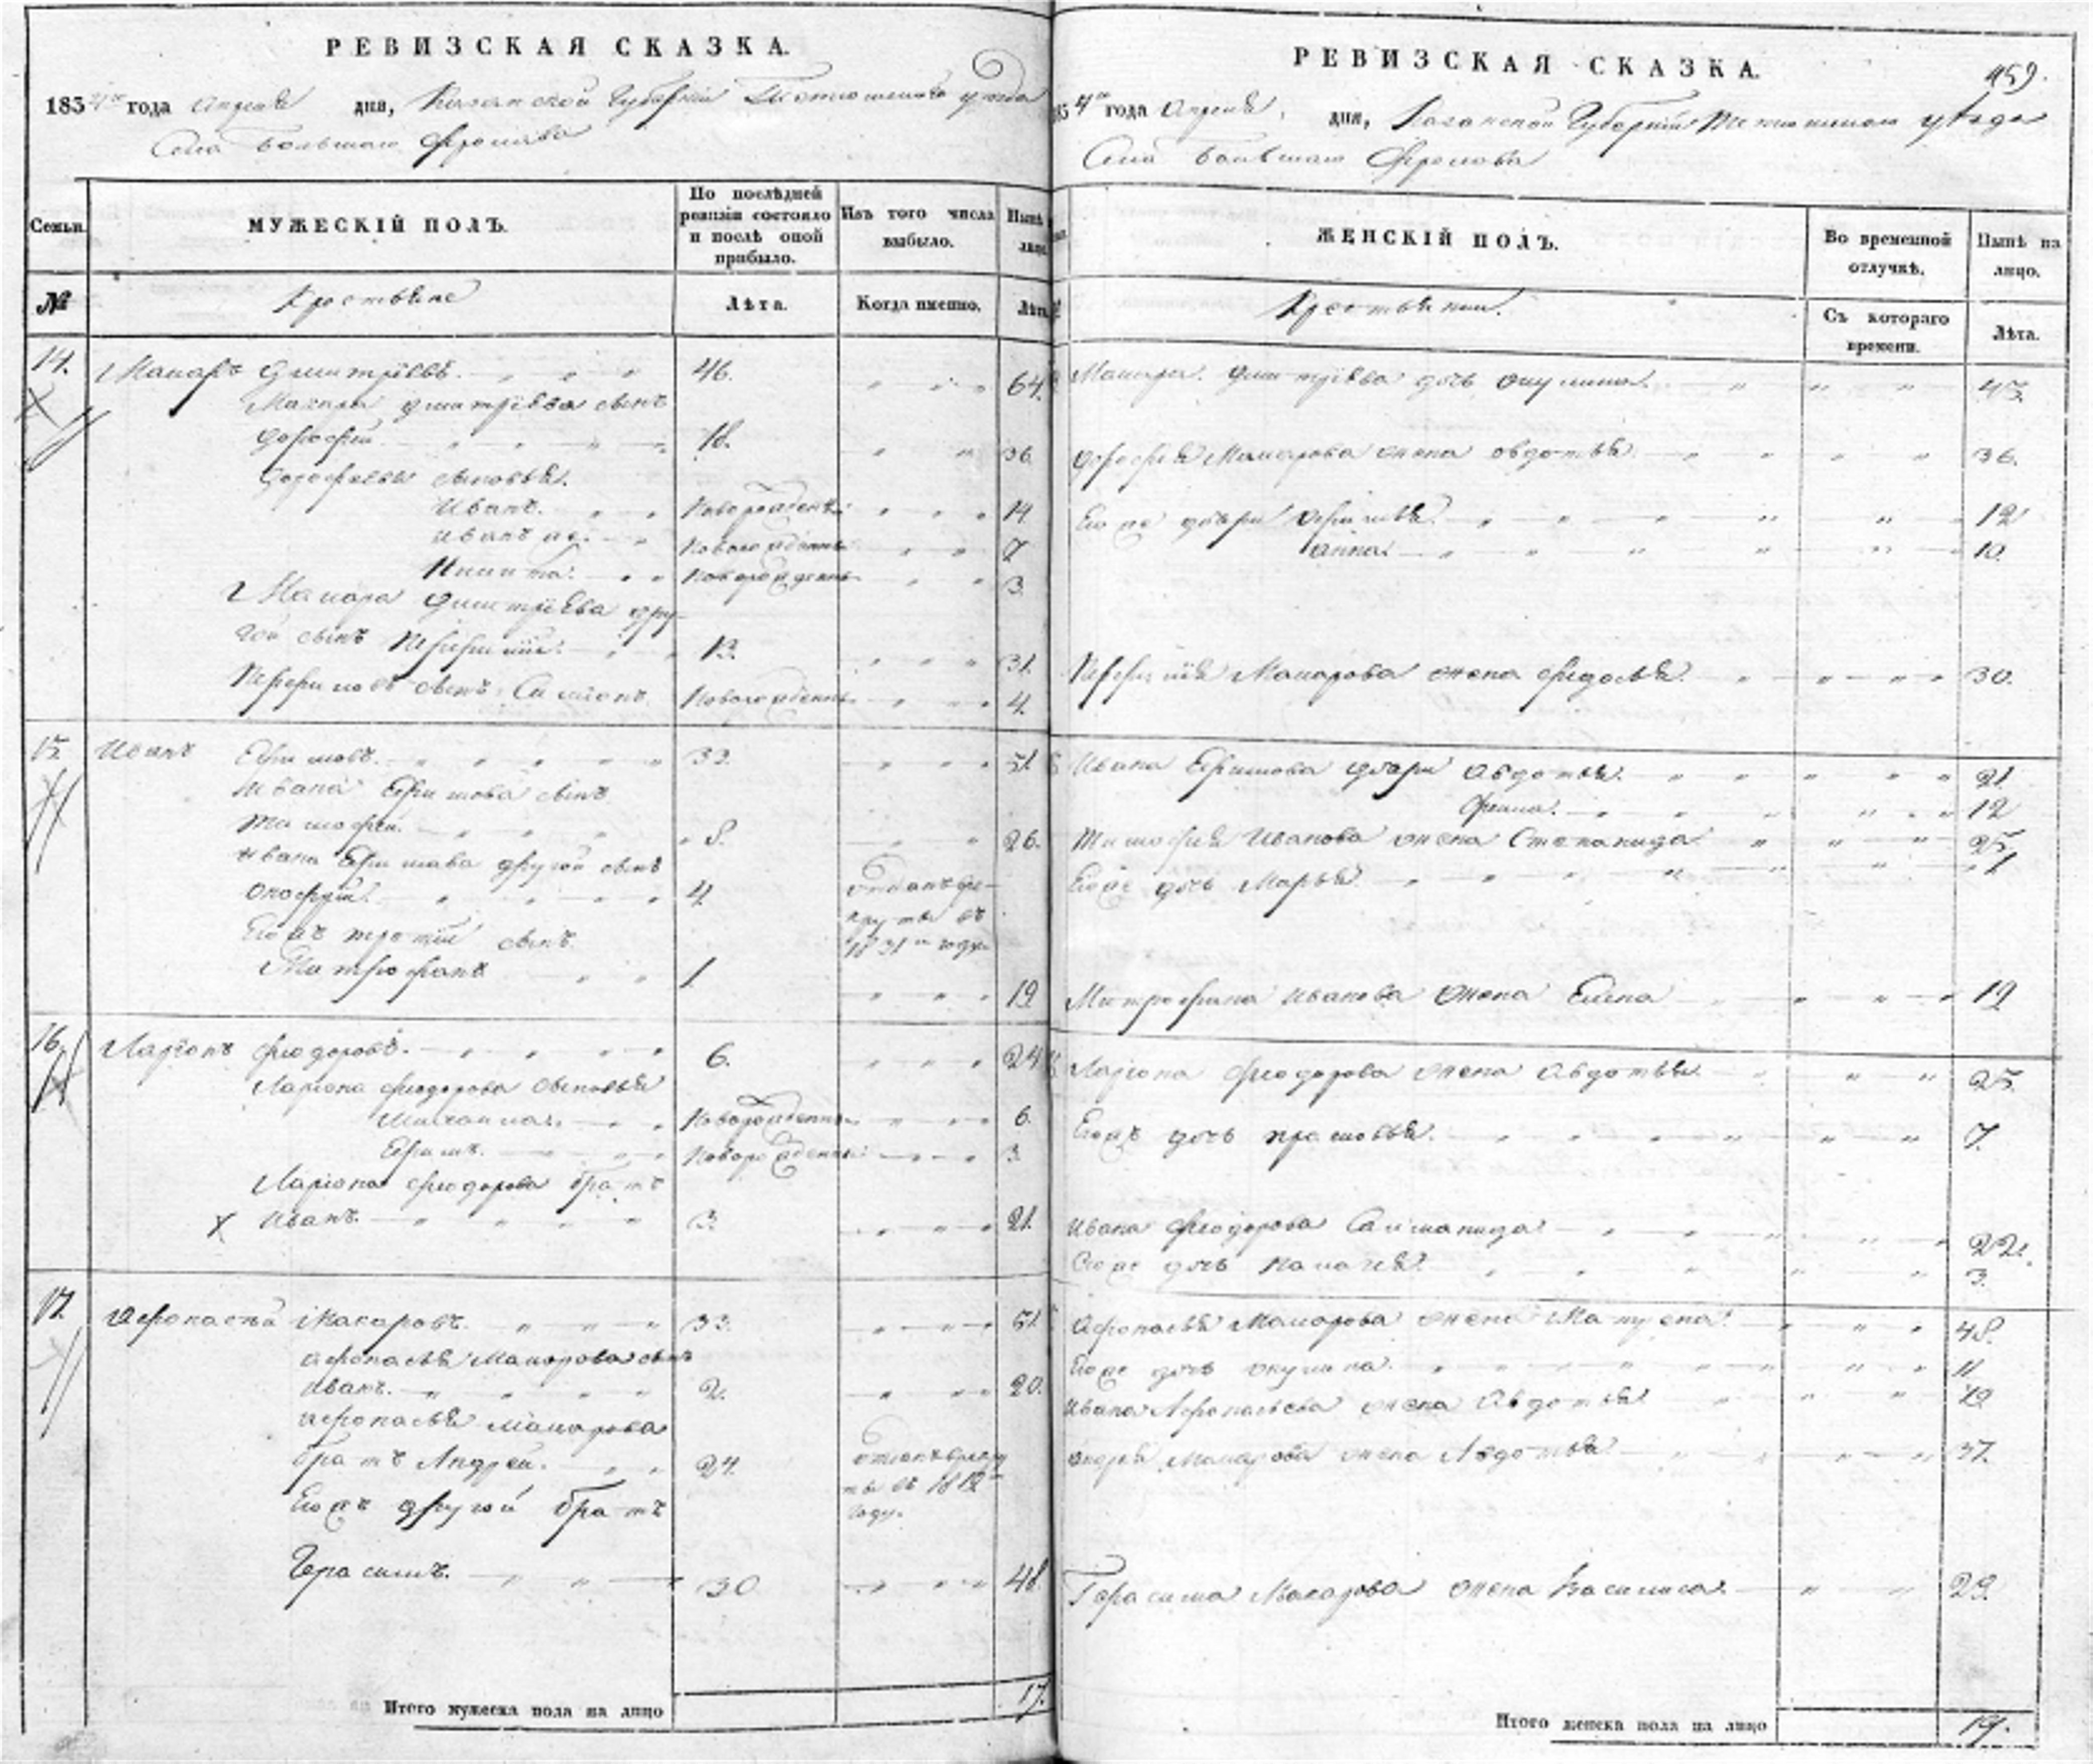 РЕВИЗСКАЯ СКАЗКА.
1834го года Апреля дня, Казанской Губернiи Тетюшскаго уезда
Села Большаго Фролова
Семьи. МУЖЕСКIЙ ПОЛЪ. По послѣдней ревизiи состояло и послѣ оной прибыло. Изъ того числа выбыло. Нынѣ на лицо.
№ Крестьяне Лѣта. Когда именно. Лѣта.
14. Макаръ Дмитрiевъ. 46. 64.
Макара Дмитрiева сынъ
Дорофей 18. 36
Дорофеевы сыновья.
Иванъ. Новорожденъ 14
Иванъ же. Новорожденъ 7
Никита. Новорожденъ 3.
Макара Дмитрiева дру-
гой сынъ 13. 31.
сынъ Симiонъ Новорожденъ 4.
15. Иванъ Ефимовъ. 33. 51
Ивана Ефимова сынъ
Тимофей. 8. 26.
Ивана Ефимова другой сынъ
4 отданъ ре-
круты въ
1831м году
Его же третiй сынъ
Митрофанъ 1. 19
16. Ларiонъ Феодоровъ. 6. 24
Ларiона Феодорова сыновья
Михаила. Новорожденъ 6.
Ефимъ. Новорожденъ 3
Ларiона Феодорова братъ
Иванъ. 3. 21.
17. Афонасiй Макаровъ. 33. 51
Афонасья Макарова сынъ
Иванъ. 2. 20.
Афонасья Макарова
братъ Андрей. 24. отданъ въ рекру
ты въ 1812
году.
Его же другой братъ
Герасимъ. 30 48.
Итого мужеска пола на лицо 17.
РЕВИЗСКАЯ СКАЗКА. 459.
1834го года Апреля, дня, Казанской Губернiи Тетюшскаго уѣзда
Села Большаго Фролова
ЖЕНСКIЙ ПОЛЪ. Во временной отлучкѣ. Нынѣ на лицо.
Крестьянки. Съ котораго времени. Лѣта.
Макара Дмитрiева дочь Акулина. 43.
Дорофея Макарова жена Овдотья 36.
Его же дочери 12
Анна. 10.
Макарова жена Федосья 30.
Ивана Ефимова дочери Авдотья. 21.
12
Тимофея Иванова жена Степанида 25
Его же дочь Марья 1
Митрофана Иванова жена Елена 19
Ларiона Феодорова жена Авдотья. 25.
Его же дочь Прасковья. 7.
Ивана Феодорова 22.
Его же дочь 3.
Афонасья Макарова жена 48.
Его же дочь Акулина. 11
Ивана Афонасьева жена Авдотья 19
Андрея Макарова жена Авдотья 37.
Герасима Макарова жена Василиса. 29.
Итого женска пола на лицо 19.